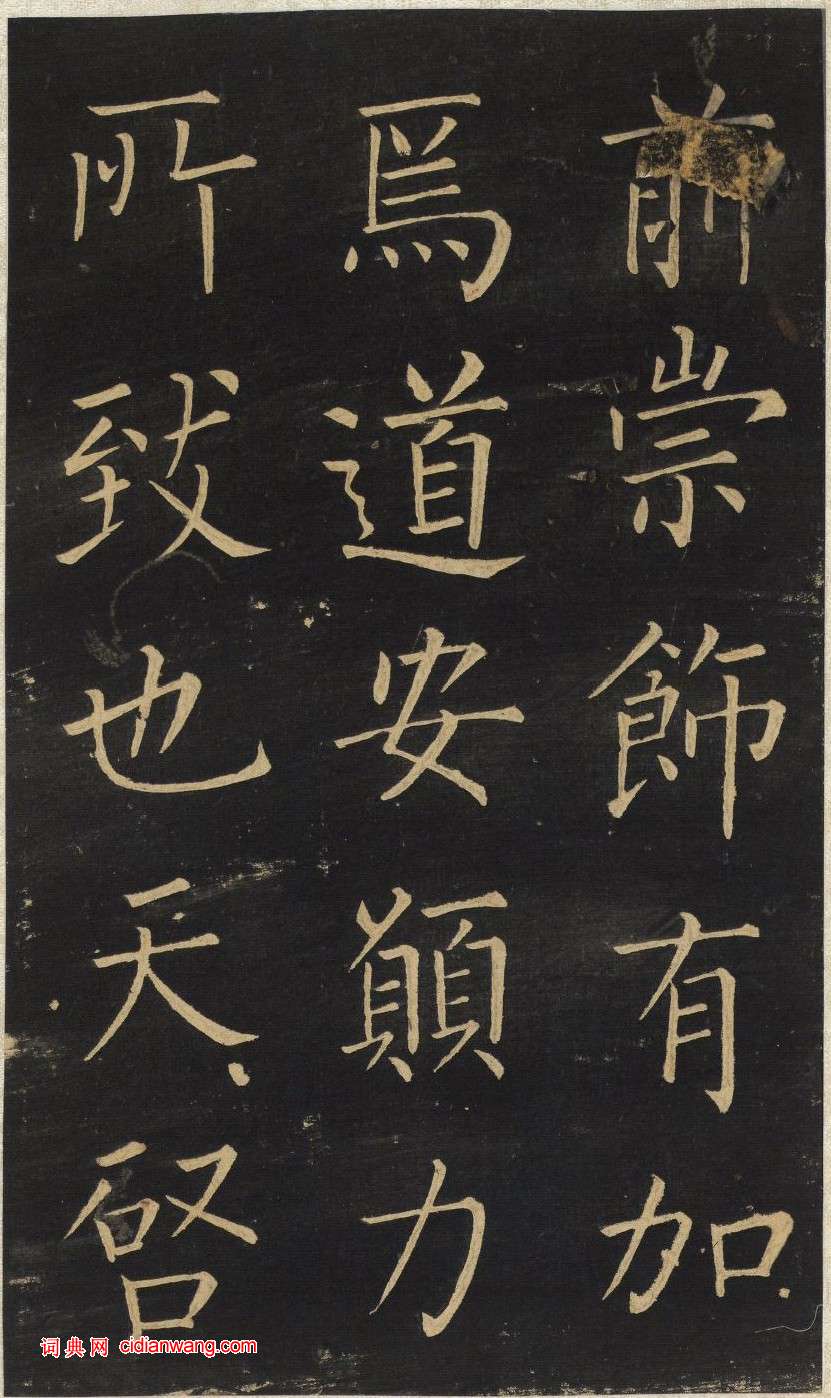 前崇飾有加
焉道安願力
所致也天啓
词典网 cidianwang.com